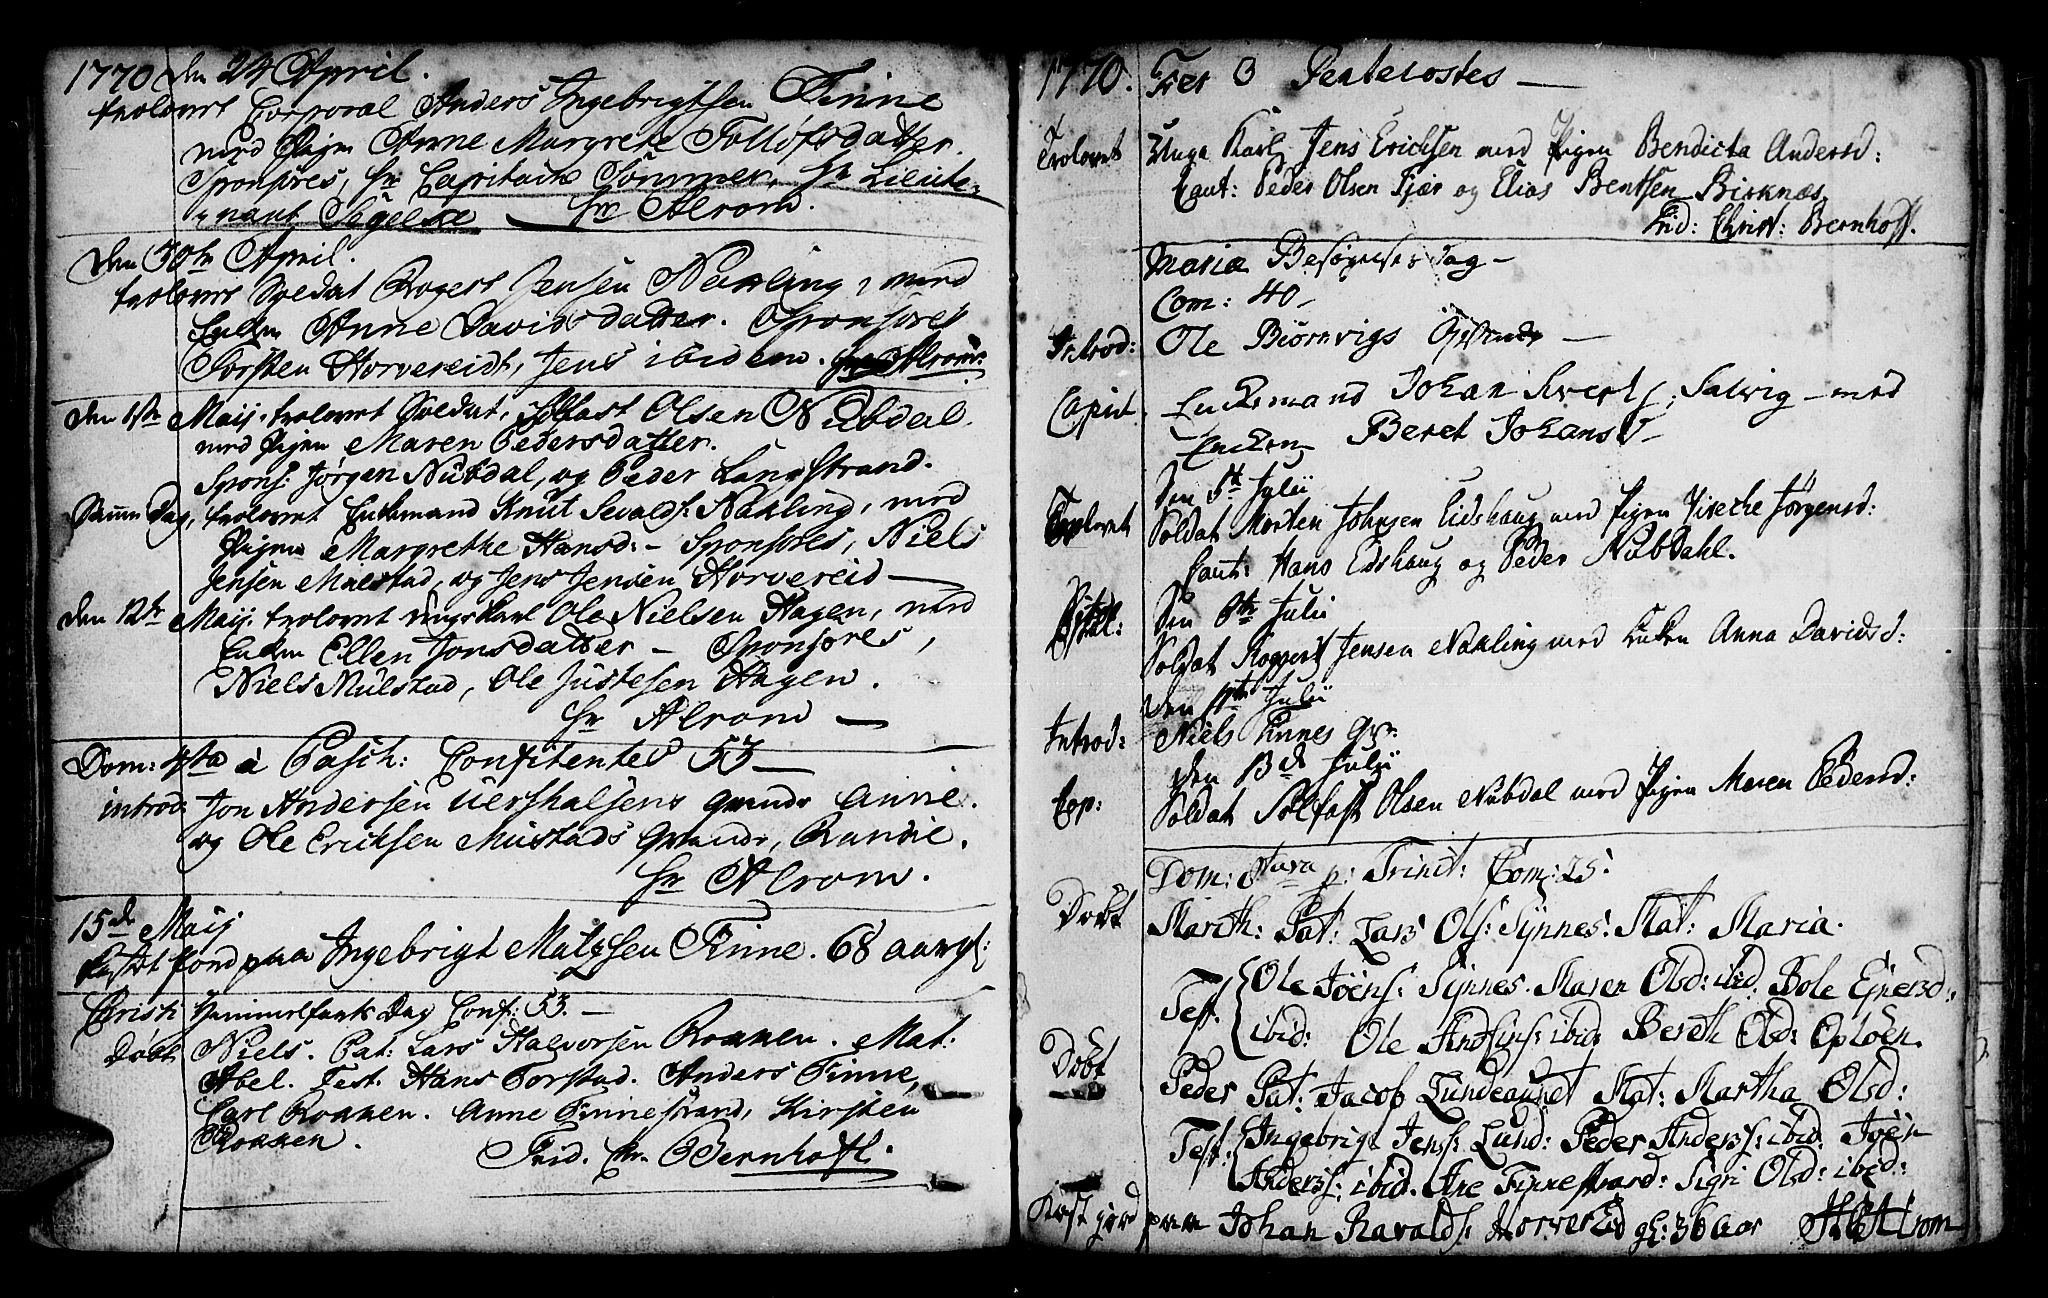 1770 den 24 April.
trolovet Corporal Anders Ingebrigtsen Finne
med Pigen Anne Margrete Tolløfsdatter.
Sponsores, hr Capitain Sommer, hr Lieute-
nant Segelke hr Alrom.
Den 30te April.
trolovet Soldat Rogert Jensen Nakling, med
Enken Anne Davidsdatter. Sponsores
Torsten Horvereidt, Jens ibidem. hr Alrom.
Den 1ste Maij. trolovet Soldat, Olsen Nubdal
med Pigen Maren Pedersdatter.
Spons: Jørgen Nubdal, og Peder Langstrand.
Samme Dag, trolovet Enkemand Knut Sevalds: Nakling, med
Pigen Margrethe Hansd: - Sponsores, Niels
Jensen Mulstad, og Jens Jensen Horvereid
den 12te Maij. trolovet ungekarl Ole Nielsen Hagen, med
Enken Ellen Jonsdatter - Sponsores,
Niels Mulstad, Ole Justesen Hagen.
hr Alrom
Dom: 4ta a Pasch: Confitentes 53
introd: Jon Andersen gvinde Anne.
og Ole Ericksen Mustads gvinde, Randie.
hr Alrom.
15de Maij
kastet Jord paa Ingebrigt Finne. 68 aar gl:
Christi Himmelfarts Dag Conf: 53.
døbt Niels. Pat: Lars Halvorsen Roxxen. Mat:
Abel. Test. Hans Torstad. Anders Finne,
Carl Roxxen. Anne Finnestrand, Kirsten
Roxxen. Frid. Chr. Bernhoft.
1770. Fer 3 Pentecostes
Trolovet Unge Karl Jens Ericksen med Pigen Bendicta Andersd:
Caut: Peder Olsen Fjær og Elias Bentsen Birknæs
Frid: Christ: Bernhoft.
Maria Besøgelses Dag
Com: 40
Introd: Ole Biørnvigs
Copul. Enkemand Johan Salvig - med
Enken Beret Johansd
Den 5te Julii
Trolovet Soldat Morten Johnsen Eidshaug med Pigen Jørgensd:
Caut: Hans Edshaug og Peder Nubdahl.
Den 6te Julii
Soldat Roggert Jensen Nakling med Enken Anna Davidsd:
den Julii
Introd: Niels Finnes qv.
den 13de Julii
Cop: Soldat Olsen Nubdal med Pigen Maren Pedersd:
Dom: p: Trinit: Com: 25.
Døbt Mareth: Pat: Lars Ols: Synnes: Mat: Maria.
Test: Ole Joens: Synnes. Maren Olsd: ibid. Bole Ejnersd:
ibid: Ole ibid: Bereth Olsd: Opløen.
Døbt Peder Pat: Jacob Lundeaunet Mat: Martha Olsd:
Test: Ingebrigt Jens: Lund: Peder Anders: ibid. Joen
Anders: ibid. Ane Finnestrand: Sigri Olsd: ibid:
Kast Jord paa Johan Horvereid gl: 36 aar H Alrom